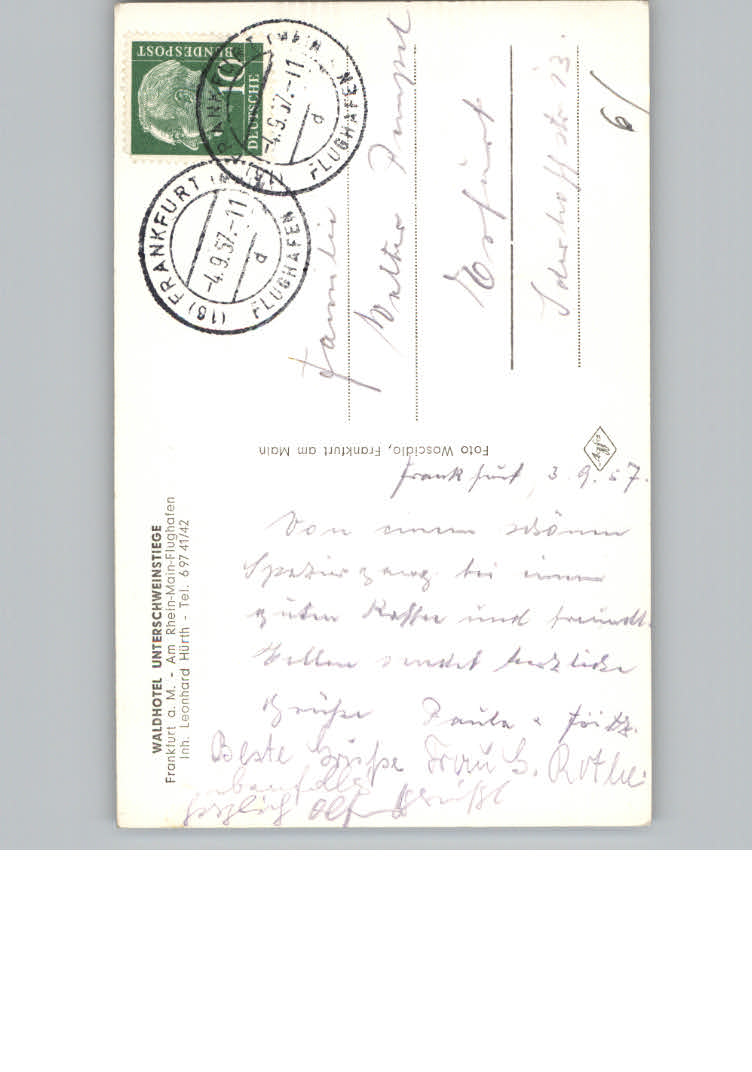 WALDHOTEL UNTERSCHWEINSTIEGE
Frankfurt a. M. - Am Rhein-Main-Flughafen
Inh. Leonhard Hürth - Tel. 69741/42
Frankfurt, 3.9.57.
Von einem schönen
Spaziergang bei einem
guten Kaffee und
sendet herzliche
Grüße Paula & Fritz.
Beste Grüße Frau G. Rothe
ebenfalls
herzlich grüßt
Foto Woscidlo, Frankfurt am Main
DEUTSCHE
BUNDESPOST
10
(16) FRANKFURT (MAIN
-4.9.57.-11
d
FLUGHAFEN
(16) FRANKFURT (MAIN
-4.9.57.-11
d
FLUGHAFEN
Familie
Walter
Erfurt
13.